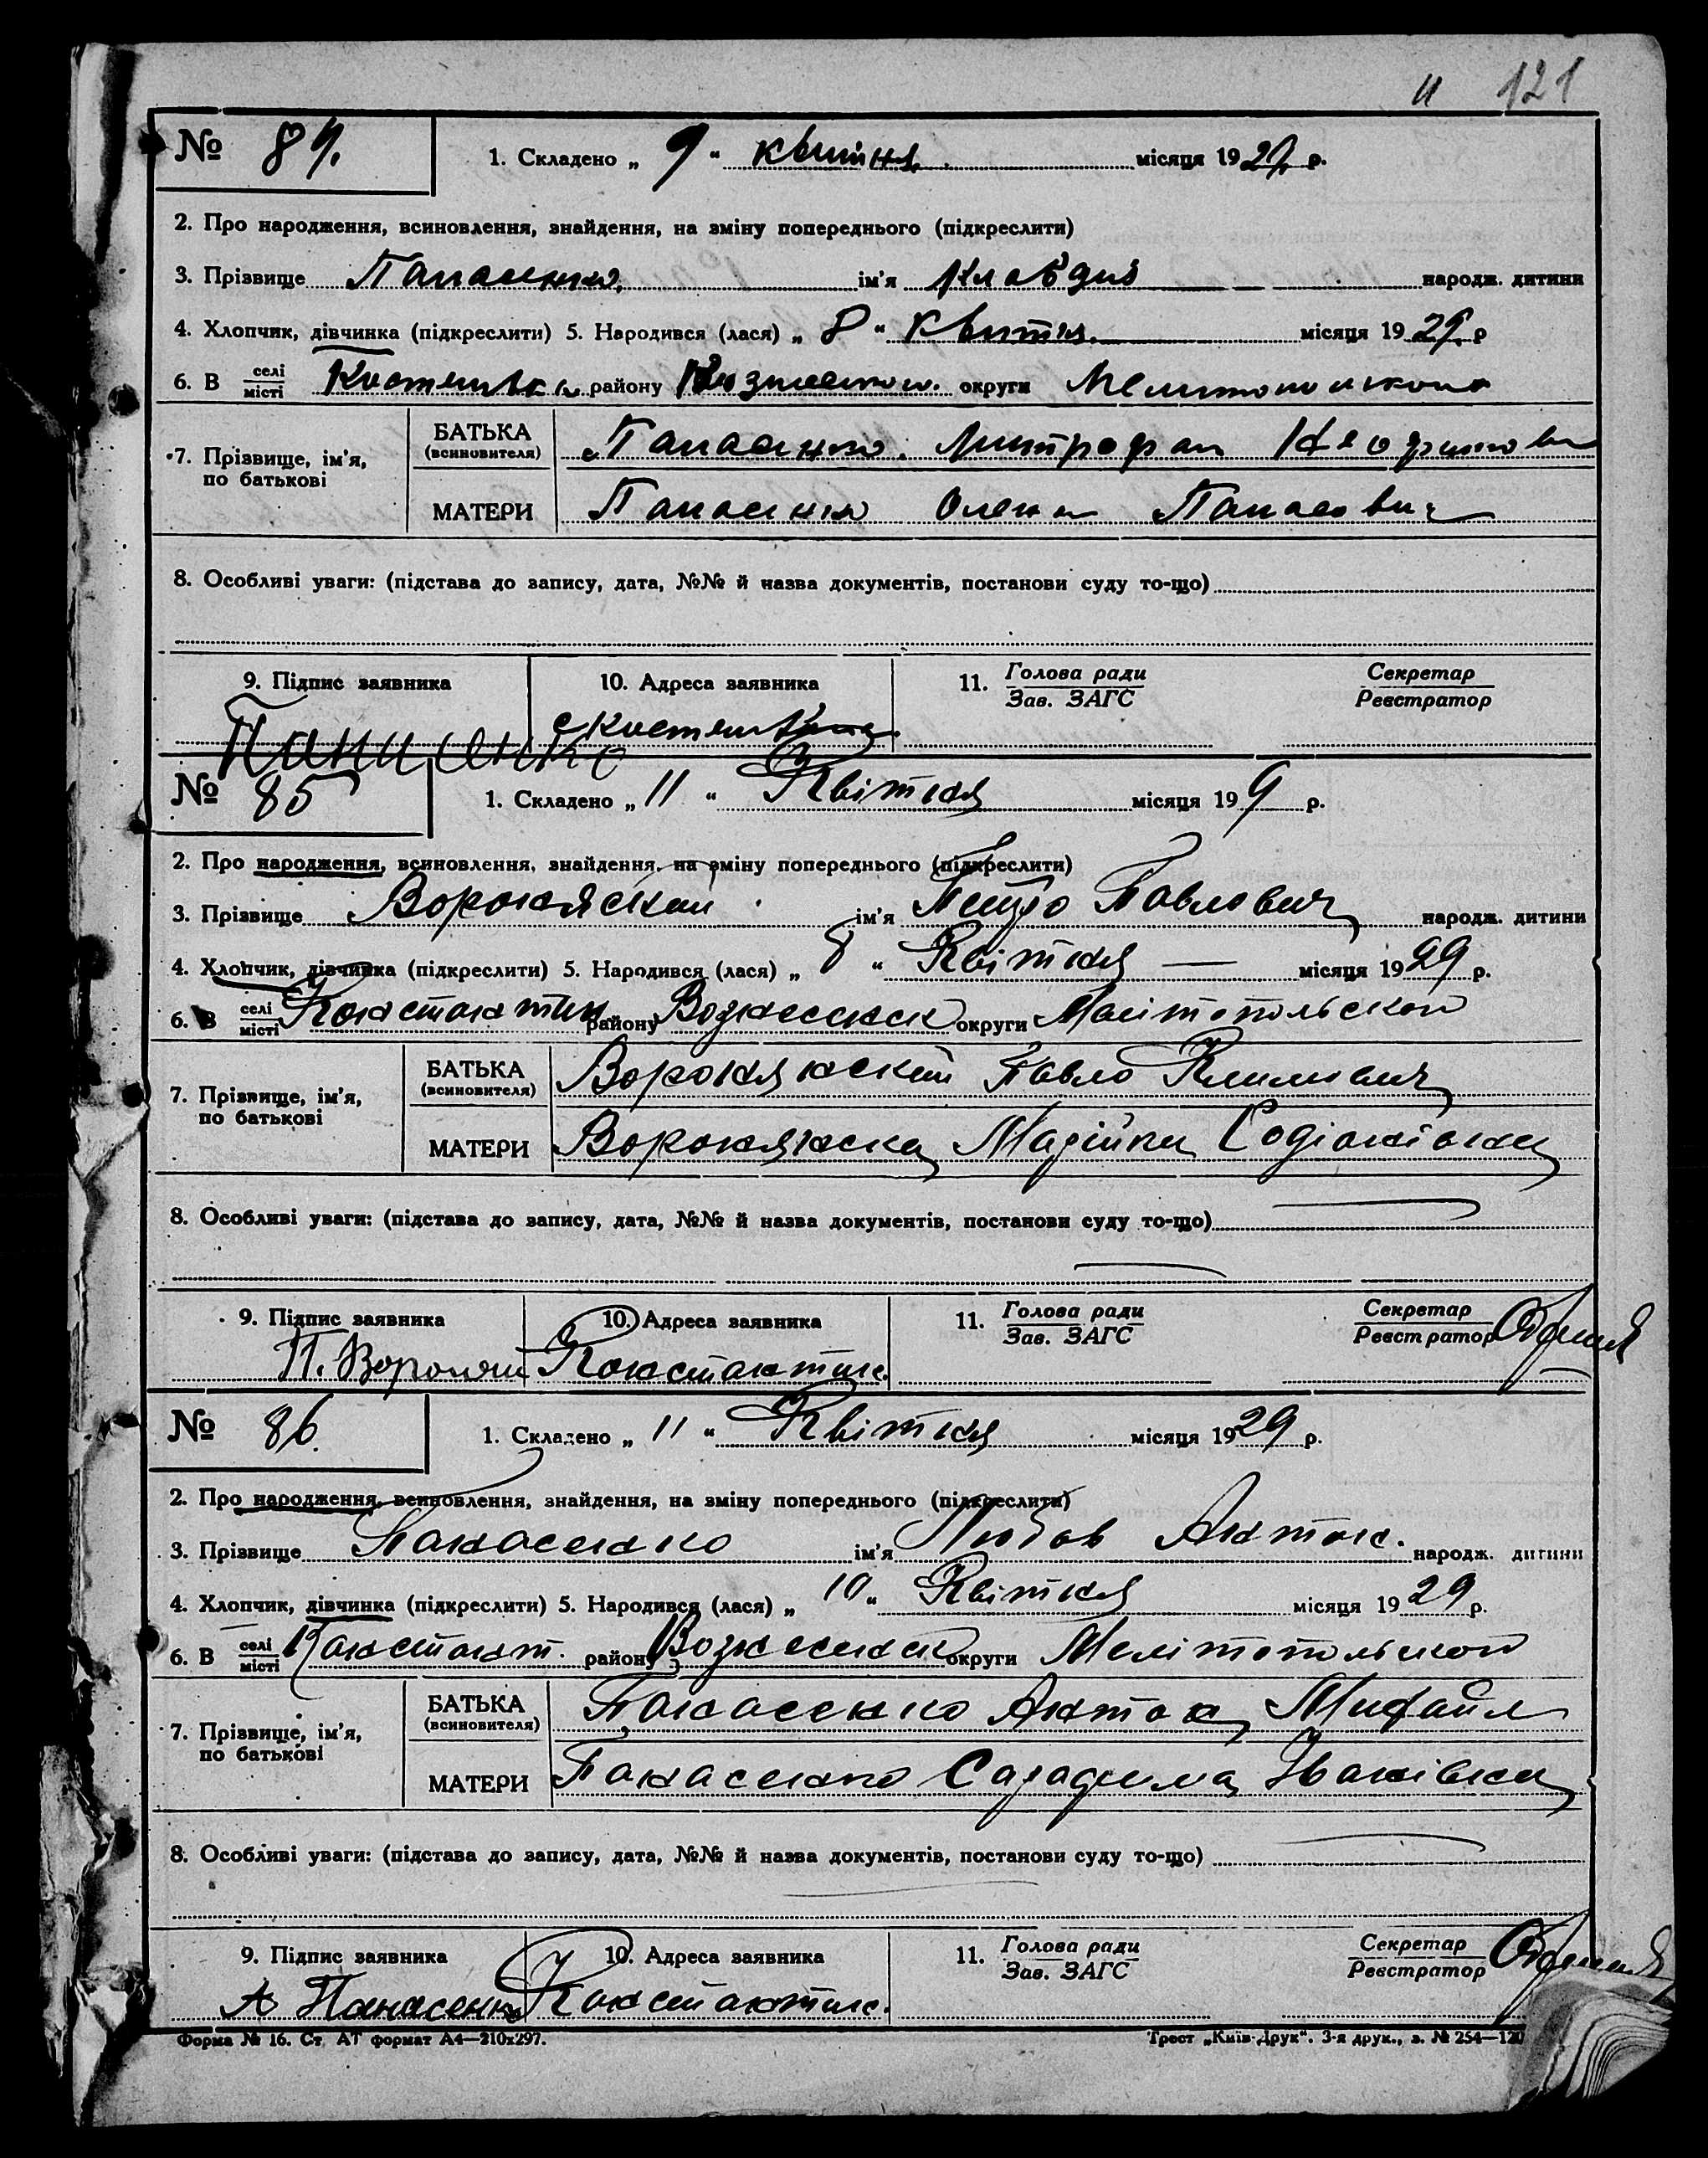 и 121
№ 84. 1. Складено „ 9 “ квітня місяця 1929 р.
2. Про народження, всиновлення, знайдення, на зміну попереднього (підкреслити)
3. Прізвище ім'я Клавдия народж. дитини
4. Хлопчик, дівчинка (підкреслити) 5. Народився (лася) „ 8 “ квітня місяця 1929 р
6. В селі місті району округи
7. Прізвище, ім'я, по батькові БАТЬКА (всиновителя) Митрофан
МАТЕРИ Олена
8. Особливі уваги: (підстава до запису, дата, №№ й назва документів, постанови суду то-що)
9. Підпис заявника 10. Адреса заявника 11. Голова ради Зав. ЗАГС Секретар Реєстратор
№ 85 1. Складено „ 11 “ Квітня місяця 199 р.
2. Про народження, всиновлення, знайдення, на зміну попереднього (підкреслити)
3. Прізвище ім'я Петро Павлович народж. дитини
4. Хлопчик, дівчинка (підкреслити) 5. Народився (лася) „ 8 “ Квітня — місяця 1929 р.
6. В селі місті Константин району Вознесенск округи
7. Прізвище, ім'я, по батькові БАТЬКА (всиновителя) Воронянский Павло Климович
МАТЕРИ Воронянска
8. Особливі уваги: (підстава до запису, дата, №№ й назва документів, постанови суду то-що)
9. Підпис заявника 10. Адреса заявника 11. Голова ради Зав. ЗАГС Секретар Реєстратор
П. Вороняни Константин.
№ 86. 1. Складено „ 11 “ Квітня місяця 1929 р.
2. Про народження, всиновлення, знайдення, на зміну попереднього (підкреслити)
3. Прізвище Панасенко ім'я Любов Антон. народж. дитини
4. Хлопчик, дівчинка (підкреслити) 5. Народився (лася) „ 10 “ Квітня місяця 1929 р.
6. В селі місті Констант. району Вознесенск округи Мелітопольской
7. Прізвище, ім'я, по батькові БАТЬКА (всиновителя) Панасенко Антон Михайл
МАТЕРИ Панасенко Іванівна
8. Особливі уваги: (підстава до запису, дата, №№ й назва документів, постанови суду то-що)
9. Підпис заявника 10. Адреса заявника 11. Голова ради Зав. ЗАГС Секретар Реєстратор
А Панасенко Константин.
Форма № 16. Ст. АТ формат А4—210х297. Трест „Київ-Друк“. 3-я друк., з. № 254—120